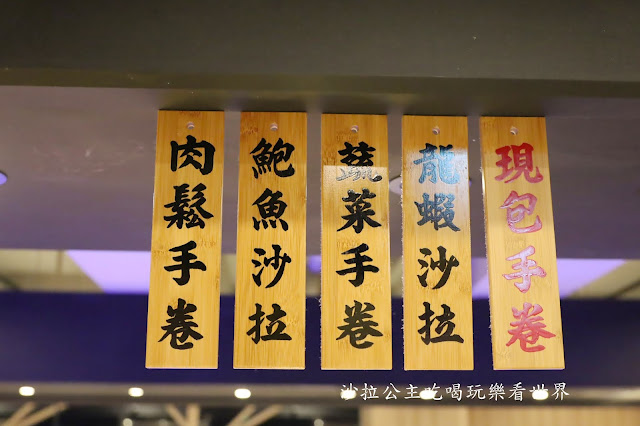 現包手卷
龍蝦沙拉
蔬菜手卷
鮑魚沙拉
肉鬆手卷
沙拉公主吃喝玩樂看世界